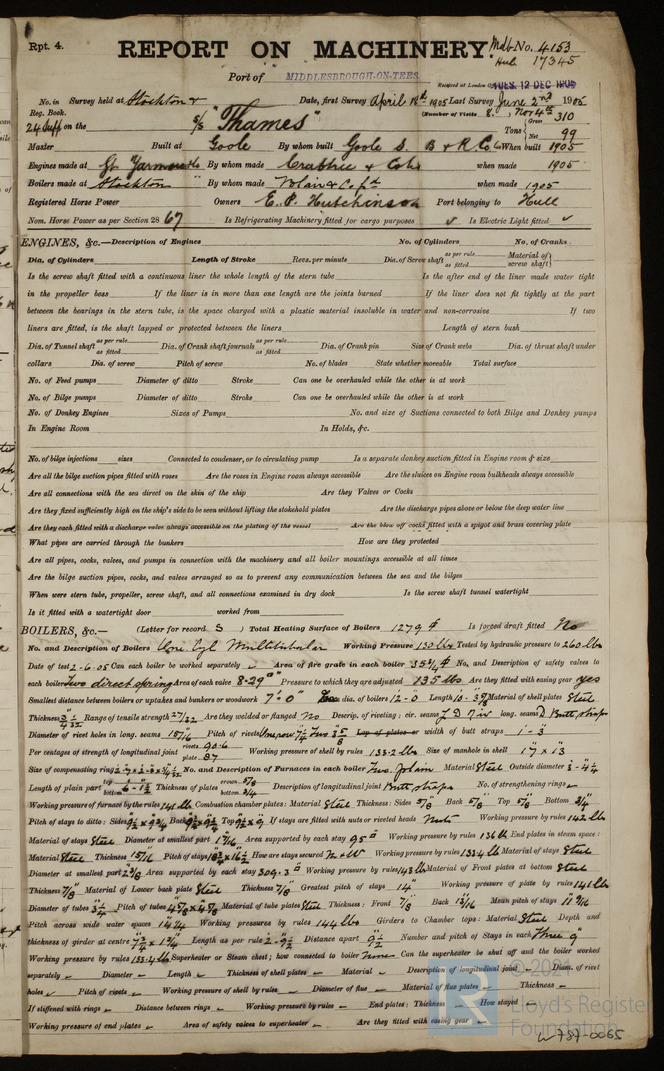 Rpt. 4. REPORT ON MACHINERY. Mdb No. 4153
Hull 17345
Port of MIDDLESBROUGH-ON-TEES.
Received at London TUES. 12 DEC 1905
No. in Survey held at Stockton & Date, first Survey April 18th 1905 Last Survey June 2nd 1905
Reg. Book. (Number of Visits 8. Nov 4th
24 Supp on the S/S "Thames" Tons Gross 310 Net 99
Master Built at Goole By whom built Goole S. B & R Co Ld When built 1905
Engines made at Gt Yarmouth By whom made Crabtree & Co Ld when made 1905
Boilers made at Stockton By whom made Blair & Co Ld when made 1905
Registered Horse Power Owners E. P. Hutchinson Port belonging to Hull
Nom. Horse Power as per Section 28 67 Is Refrigerating Machinery fitted for cargo purposes ✓ Is Electric Light fitted ✓
ENGINES, &c.—Description of Engines No. of Cylinders No. of Cranks
Dia. of Cylinders Length of Stroke Revs. per minute Dia. of Screw shaft as per rule as fitted Material of screw shaft
Is the screw shaft fitted with a continuous liner the whole length of the stern tube Is the after end of the liner made water tight
in the propeller boss If the liner is in more than one length are the joints burned If the liner does not fit tightly at the part
between the bearings in the stern tube, is the space charged with a plastic material insoluble in water and non-corrosive If two
liners are fitted, is the shaft lapped or protected between the liners Length of stern bush
Dia. of Tunnel shaft as per rule as fitted Dia. of Crank shaft journals as per rule as fitted Dia. of Crank pin Size of Crank webs Dia. of thrust shaft under
collars Dia. of screw Pitch of screw No. of blades State whether moveable Total surface
No. of Feed pumps Diameter of ditto Stroke Can one be overhauled while the other is at work
No. of Bilge pumps Diameter of ditto Stroke Can one be overhauled while the other is at work
No. of Donkey Engines Sizes of Pumps No. and size of Suctions connected to both Bilge and Donkey pumps
In Engine Room In Holds, &c.
No. of bilge injections sizes Connected to condenser, or to circulating pump Is a separate donkey suction fitted in Engine room & size
Are all the bilge suction pipes fitted with roses Are the roses in Engine room always accessible Are the sluices on Engine room bulkheads always accessible
Are all connections with the sea direct on the skin of the ship Are they Valves or Cocks
Are they fixed sufficiently high on the ship's side to be seen without lifting the stokehold plates Are the discharge pipes above or below the deep water line
Are they each fitted with a discharge valve always accessible on the plating of the vessel Are the blow off cocks fitted with a spigot and brass covering plate
What pipes are carried through the bunkers How are they protected
Are all pipes, cocks, valves, and pumps in connection with the machinery and all boiler mountings accessible at all times
Are the bilge suction pipes, cocks, and valves arranged so as to prevent any communication between the sea and the bilges
When were stern tube, propeller, screw shaft, and all connections examined in dry dock Is the screw shaft tunnel watertight
Is it fitted with a watertight door worked from
BOILERS, &c.— (Letter for record S) Total Heating Surface of Boilers 1279 Is forced draft fitted No
No. and Description of Boilers One Cyl Multitubular Working Pressure 130 lbs Tested by hydraulic pressure to 260 lbs
Date of test 2-6-05 Can each boiler be worked separately Area of fire grate in each boiler 35 3/4 No. and Description of safety valves to
each boiler Two direct spring Area of each valve 8.29" Pressure to which they are adjusted 135 lbs Are they fitted with easing gear yes
Smallest distance between boilers or uptakes and bunkers or woodwork 7" 0" dia. of boilers 12-0 Length 10-3 Material of shell plates Steel
Thickness 31/32 Range of tensile strength 27/32 Are they welded or flanged No Descrip. of riveting: cir. seams long. seams D Butt straps
Diameter of rivet holes in long. seams 15/16 Pitch of rivets Lap of plates or width of butt straps 1-3
Per centages of strength of longitudinal joint rivets 90.6 plate 87 Working pressure of shell by rules 133.2 lbs Size of manhole in shell 17" x 13
Size of compensating ring No. and Description of Furnaces in each boiler Two plain Material Steel Outside diameter 3-4 1/4
Length of plain part top bottom Thickness of plates crown 5/8 bottom 3/4 Description of longitudinal joint Butt straps No. of strengthening rings
Working pressure of furnace by the rules lb Combustion chamber plates: Material Steel Thickness: Sides 5/8 Back 5/8 Top 5/8 Bottom 3/4
Pitch of stays to ditto: Sides Back Top If stays are fitted with nuts or riveted heads Nuts Working pressure by rules 142 lb
Material of stays Steel Diameter at smallest part Area supported by each stay 95 Working pressure by rules 136 lb End plates in steam space:
Material Steel Thickness 15/16 Pitch of stays How are stays secured N & W Working pressure by rules 133.4 lb Material of stays Steel
Diameter at smallest part Area supported by each stay 309.3 Working pressure by rules 143 lb Material of Front plates at bottom Steel
Thickness 7/8 Material of Lower back plate Steel Thickness 7/8 Greatest pitch of stays 14" Working pressure of plate by rules 141 lb
Diameter of tubes 3 1/4 Pitch of tubes Material of tube plates Steel Thickness: Front 7/8 Back 13/16 Mean pitch of stays
Pitch across wide water spaces 14 1/4 Working pressures by rules 144 lbs Girders to Chamber tops: Material Steel Depth and
thickness of girder at centre Length as per rule 2-9 1/2 Distance apart 9 1/2 Number and pitch of Stays in each Three 9"
Working pressure by rules 133.4 lb Superheater or Steam chest; how connected to boiler None Can the superheater be shut off and the boiler worked
separately Diameter Length Thickness of shell plates Material Description of longitudinal joint Diam. of rivet
holes Pitch of rivets Working pressure of shell by rules Diameter of flue Material of flue plates Thickness
If stiffened with rings Distance between rings Working pressure by rules End plates: Thickness How stayed
Working pressure of end plates Area of safety valves to superheater Are they fitted with easing gear
Lloyd's Register
Foundation
W787-0065